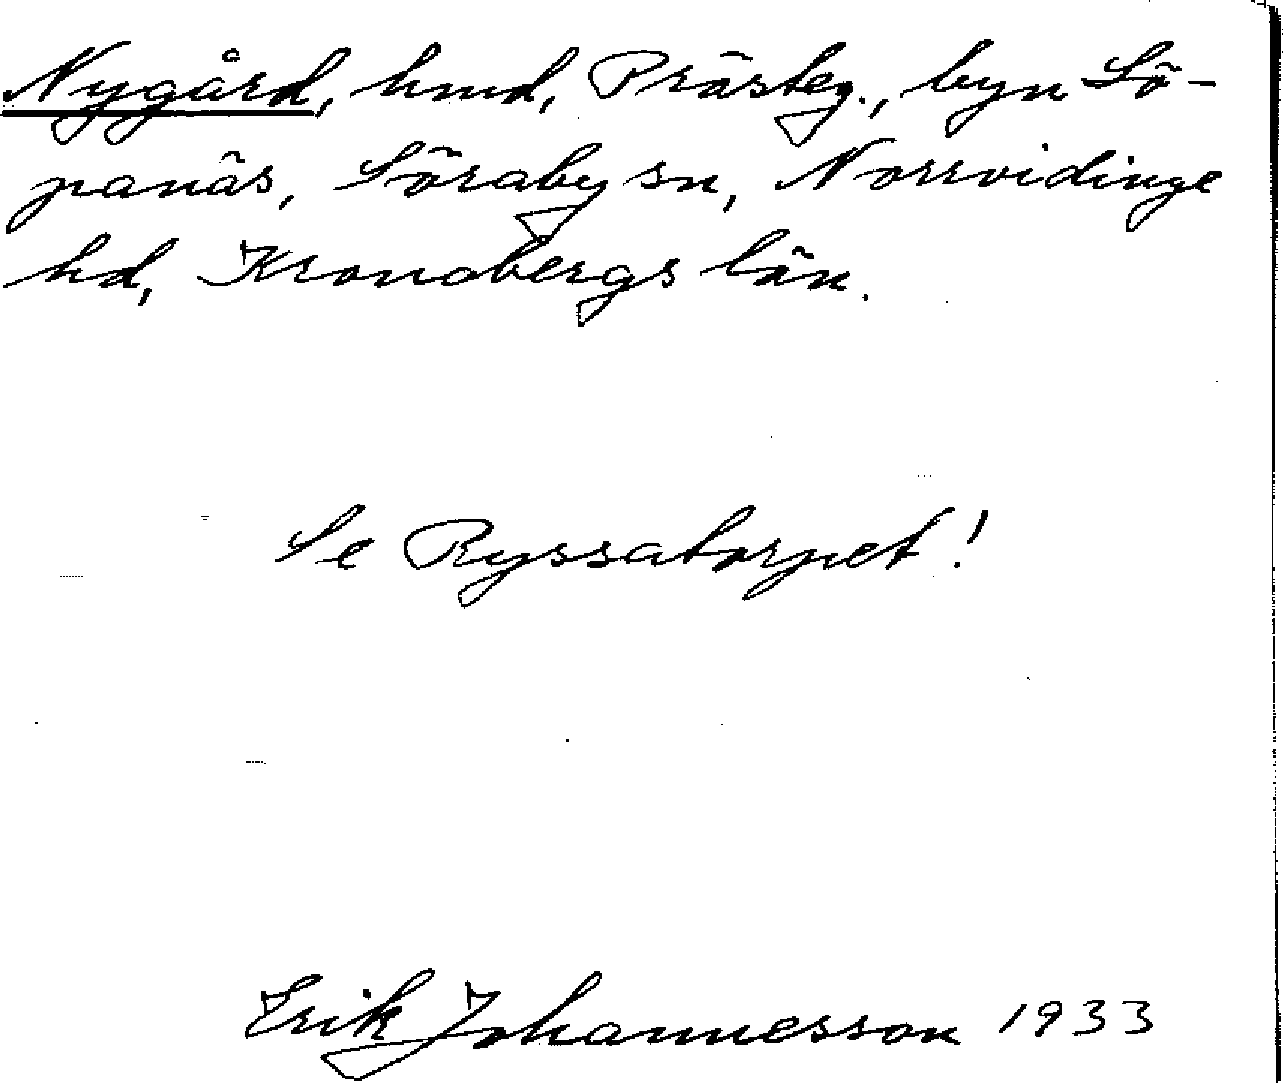 Nygård, hmd, Prästeg., byn Sö-
panäs, Söraby sn, Norrvidinge
hd, Kronobergs län.
Se Ryssatorpet!
Erik Johannesson 1933